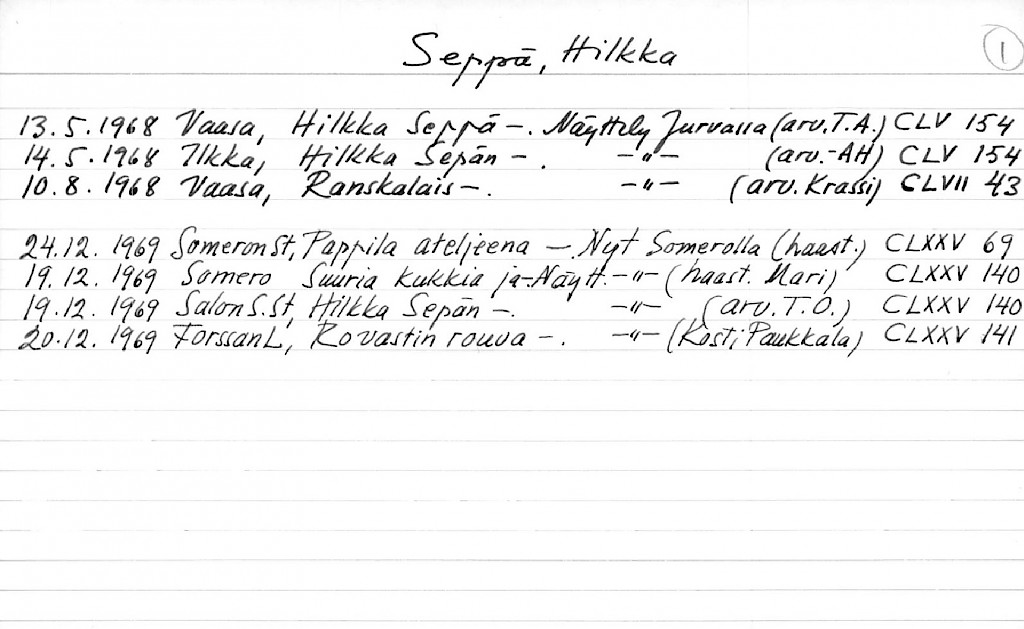 Seppä, Hilkka
1
13.5.1968 Vaasa, Hilkka Seppä –. Näyttely Jurvassa (arv. T.A.) CLV 154
14.5.1968 Ilkka, Hilkka Sepän –. –"– (arv.-AH) CLV 154
10.8.1968 Vaasa, Ranskalais –. –"– (arv. Krassi) CLVII 43
24.12.1969 SomeronSt, Pappila ateljeena – Nyt Somerolla (haast.) CLXXV 69
19.12.1969 Somero Suuria kukkia ja –. Näytt. –"– (haast. Mari) CLXXV 140
19.12.1969 SalonS.St, Hilkka Sepän –. –"– (arv. T.O.) CLXXV 140
20.12.1969 ForssanL, Rovastin rouva –. –"– (Kosti Paukkala) CLXXV 141